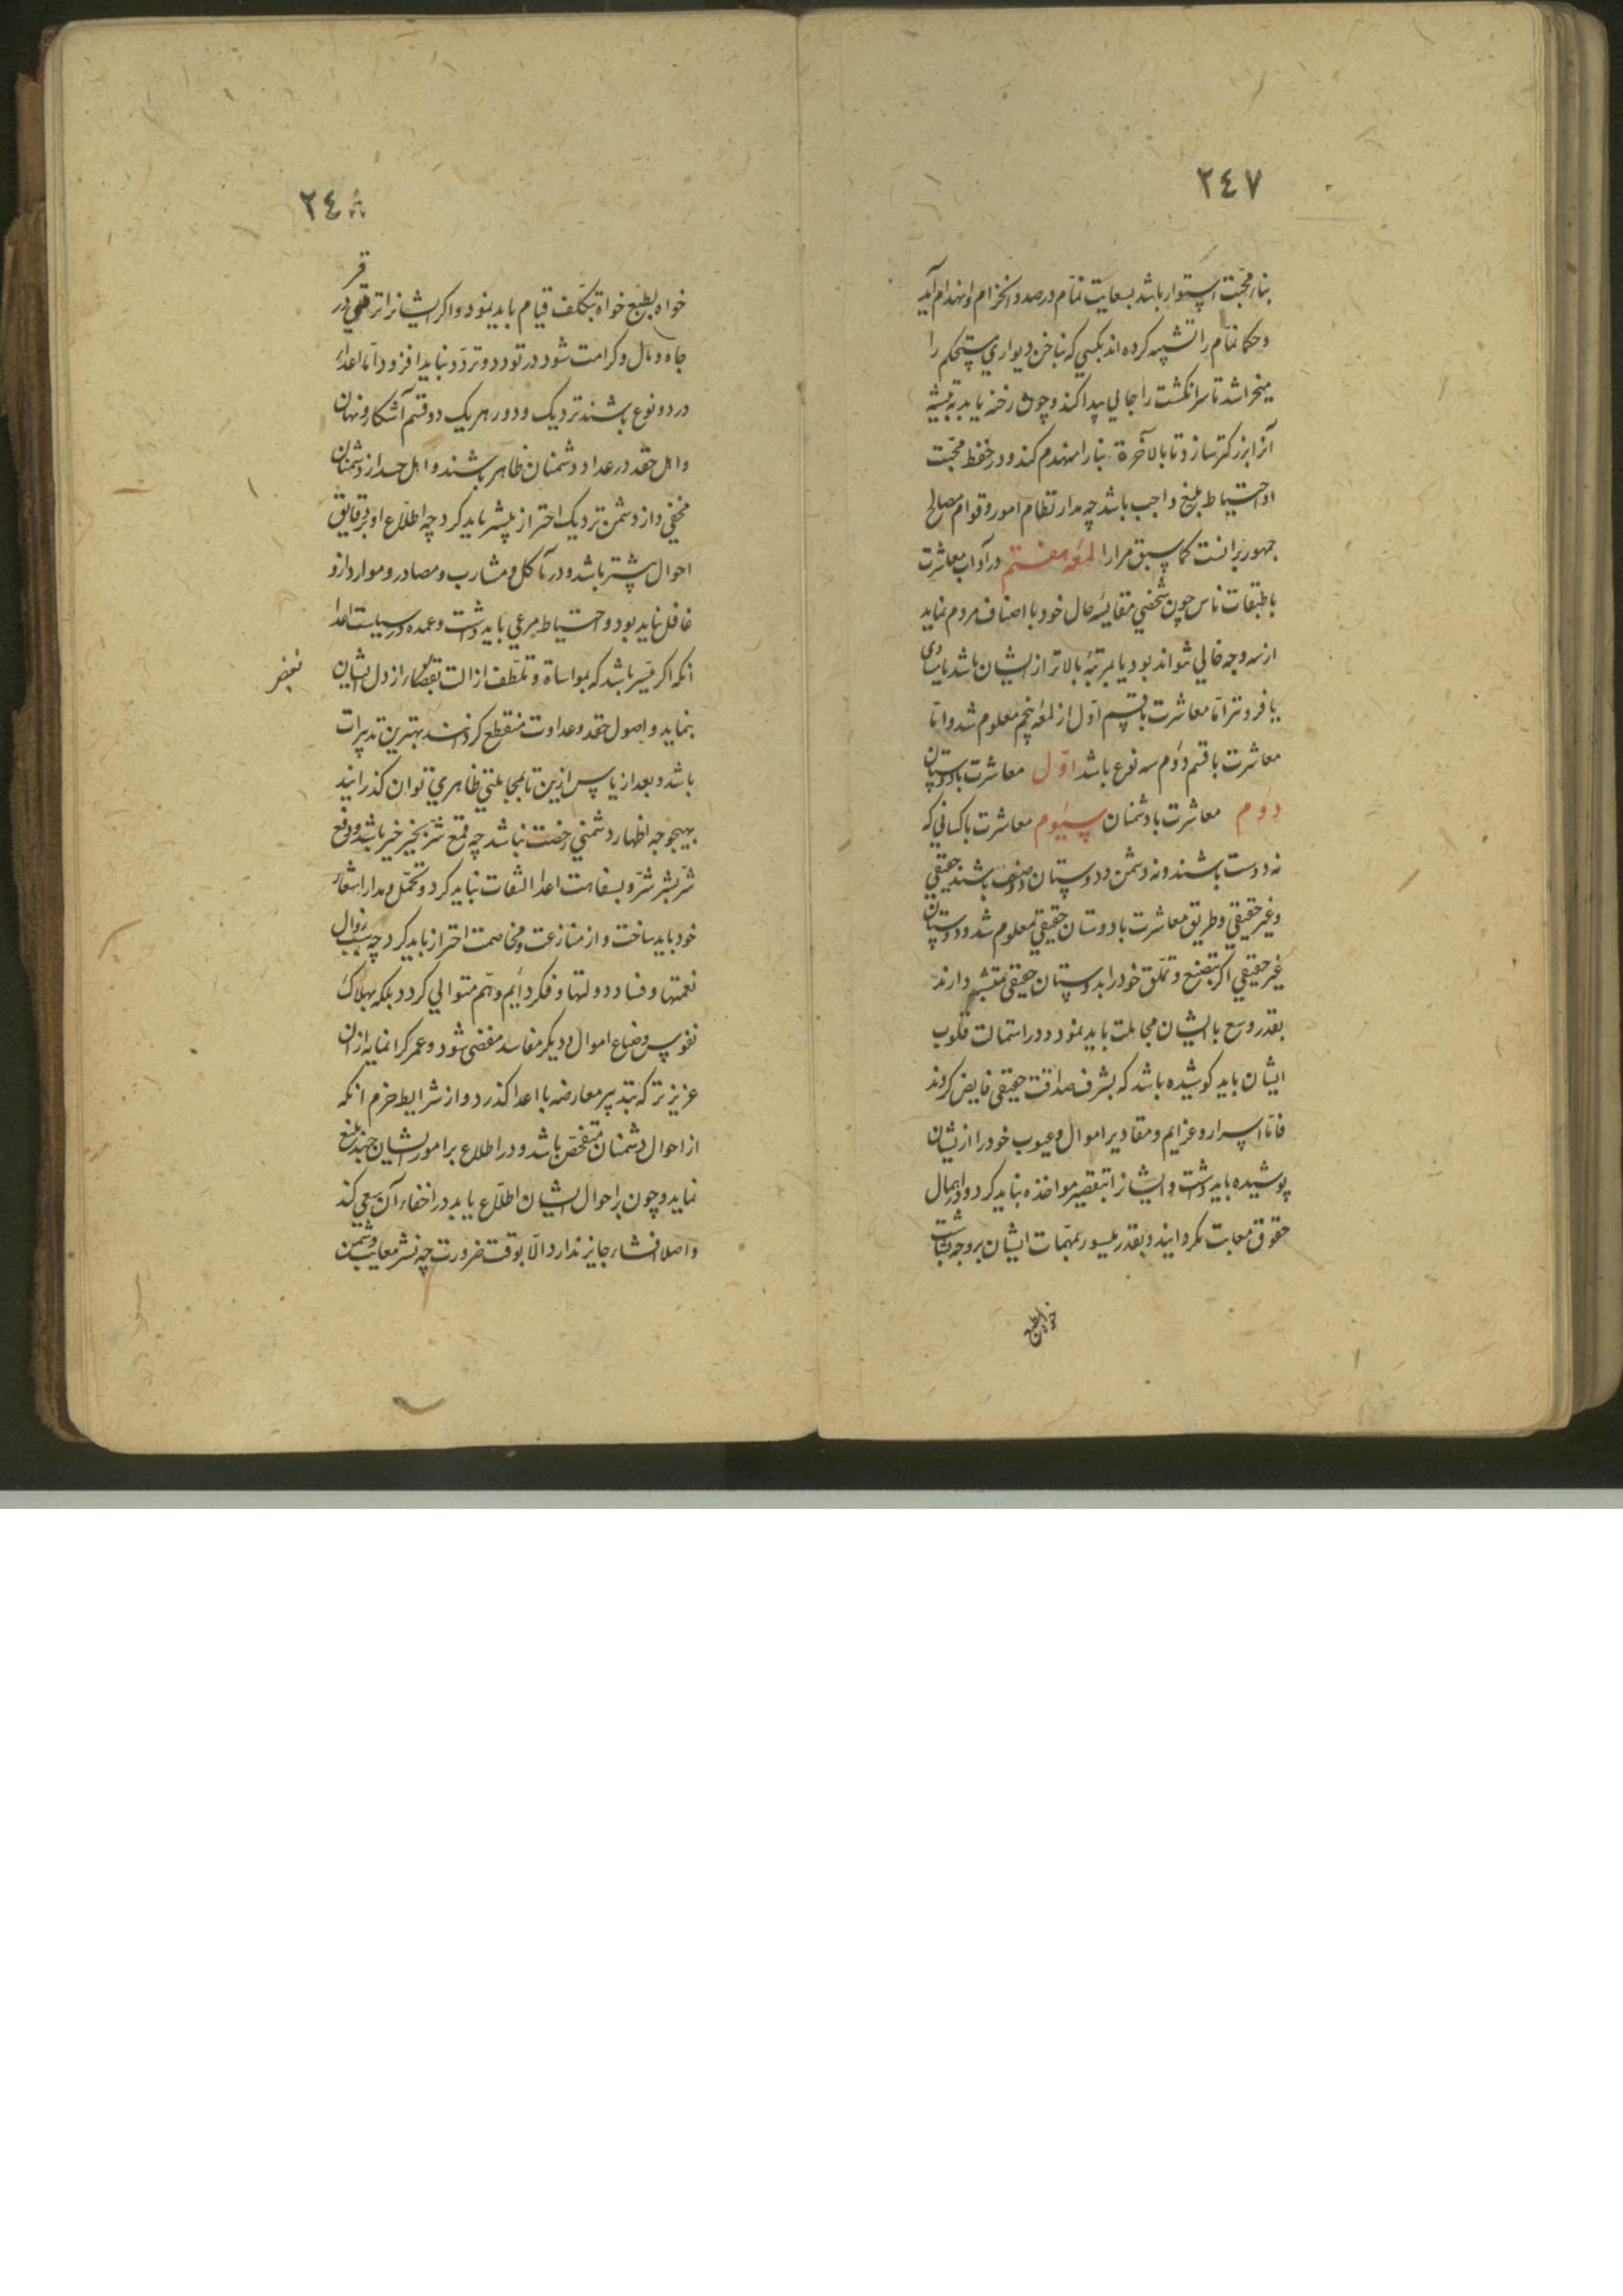 ٢٤٧
بناء محبت استوار باشد بسعایت نمام در صدد انخرام و انهدام آید
و حکما نمام را تشبیه کرده اند بکسی که بناخن دیواری مستحکم را
میخراشد تا سر انگشت را جائی پیدا کند و چون رخنه یابد به تیشه
آنرا بزرگتر سازد تا بالآخرة بنا را منهدم کند و در حفظ محبت
احتیاط بلیغ واجب باشد چه مدار نظام امور و قوام مصالح
جمهور برانست کما سبق مرارا لمعه هفتم در آداب معاشرت
با طبقات ناس چون شخصی مقایسه حال خود با اصناف مردم نماید
از سه وجه خالی نتواند بود یا بمرتبه بالاتر از ایشان باشد یا مساوی
یا فروتر اما معاشرت با قسم اول از لمعه پنجم معلوم شد و اما
معاشرت با قسم دوم سه نوع باشد اول معاشرت با دوستان
دوم معاشرت با دشمنان سیوم معاشرت با کسانی که
نه دوست باشند و نه دشمن و دوستان دو صنف باشند حقیقی
و غیر حقیقی و طریق معاشرت با دوستان حقیقی معلوم شد و دوستان
غیر حقیقی اگر بتصنع و تملق خود را بدوستان حقیقی متشبه دارند
بقدر وسع با ایشان مجاملت باید نمود و در استمالت قلوب
ایشان باید کوشیده باشد که بشرف صداقت حقیقی فایض گردند
فاما اسرار و عزایم و مقادیر اموال و عیوب خود را از ایشان
پوشیده باید داشت و ایشانرا بتقصیر مواخذه نباید کرد و در اهمال
حقوق معاتب نگردانید و بقدر میسور بمهمات ایشان بر وجه بشاشت
خواه بطبع
٢٤٨
خواه بطبع خواه بتکلف قیام باید نمود و اگر ایشانرا ترقی در
جاه و مال و کرامت شود در تودد و تردد نباید افزود اما اعدا
در دو نوع باشند نزدیک و دور و هر یک دو قسم آشکار و نهان
و اهل حقد در عداد دشمنان ظاهر باشند و اهل حسد از دشمنان
مخفی و از دشمن نزدیک احتراز بیشتر باید کرد چه اطلاع او بر دقایق
احوال بیشتر باشد و در مآکل و مشارب و مصادر و موارد ازو
غافل نباید بود و احتیاط مرعی باید داشت و عمده در سیاست اعدا
انکه اگر میسر باشد که بمواساة و تلطف ازالت از دل ایشان
بنماید و اصول حقد و عداوت منقطع گرداند بهترین تدبیرات
باشد و بعد از یاس ازین تا بمجاملتی ظاهری توان گذرانید
بهیچوجه اظهار دشمنی رخصت نباشد چه قمع شر بخیر خیر باشد و دفع
شر بشر شر و بسفاهت اعدا التفات نباید کرد و تحمل و مدارا شعار
خود باید ساخت و از منازعت و مخاصمت احتراز باید کرد چه سبب زوال
نعمتها و فساد دولتها و فکر دایم و هم متوالی گردد بلکه بهلاک
نفوس و ضیاع اموال و دیگر مفاسد مفضی شود و عمر گرانمایه ازان
عزیزتر که بتدبیر معارضه با اعدا گذرد و از شرایط حزم انکه
از احوال دشمنان متفحص باشد و در اطلاع بر امور ایشان جهد بلیغ
نماید و چون بر احوال ایشان اطلاع یابد در اخفاء آن سعی کند
و اصلا افشاء جایز ندارد الا بوقت ضرورت چه نشر معایب دشمن